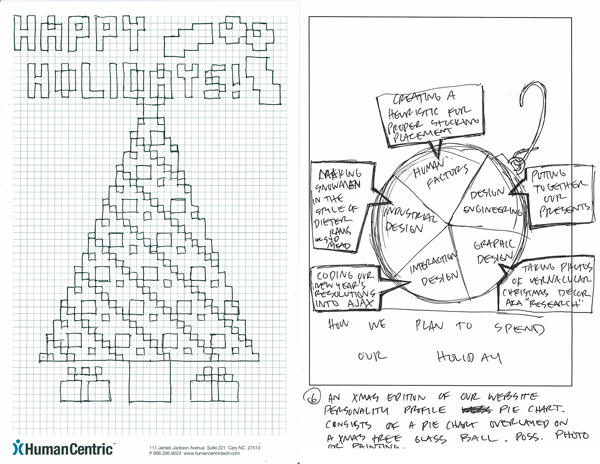 HAPPY
HOLIDAYS!
HumanCentric
111 James Jackson Avenue Suite 221 Cary NC 27513
P 866.356.9023 www.humancentrictech.com
CREATING A
HEURISTIC FOR
PROPER STOCKING
PLACEMENT
MAKING
SNOWMEN
IN THE
STYLE OF
DIETER
RAMS
OR SYD
MEAD
HUMAN
FACTORS
DESIGN
ENGINEERING
PUTTING
TOGETHER
OUR
PRESENTS
INDUSTRIAL
DESIGN
GRAPHIC
DESIGN
INTERACTION
DESIGN
CODING OUR
NEW YEAR'S
RESOLUTIONS
INTO AJAX
TAKING PHOTOS
OF VERNACULAR
CHRISTMAS DECOR
AKA "RESEARCH"
HOW WE PLAN TO SPEND
OUR HOLIDAY
AN XMAS EDITION OF OUR WEBSITE
PERSONALITY PROFILE PIE CHART.
CONSISTS OF A PIE CHART OVERLAYED ON
A XMAS TREE GLASS BALL. POSS. PHOTO
OR PAINTING.